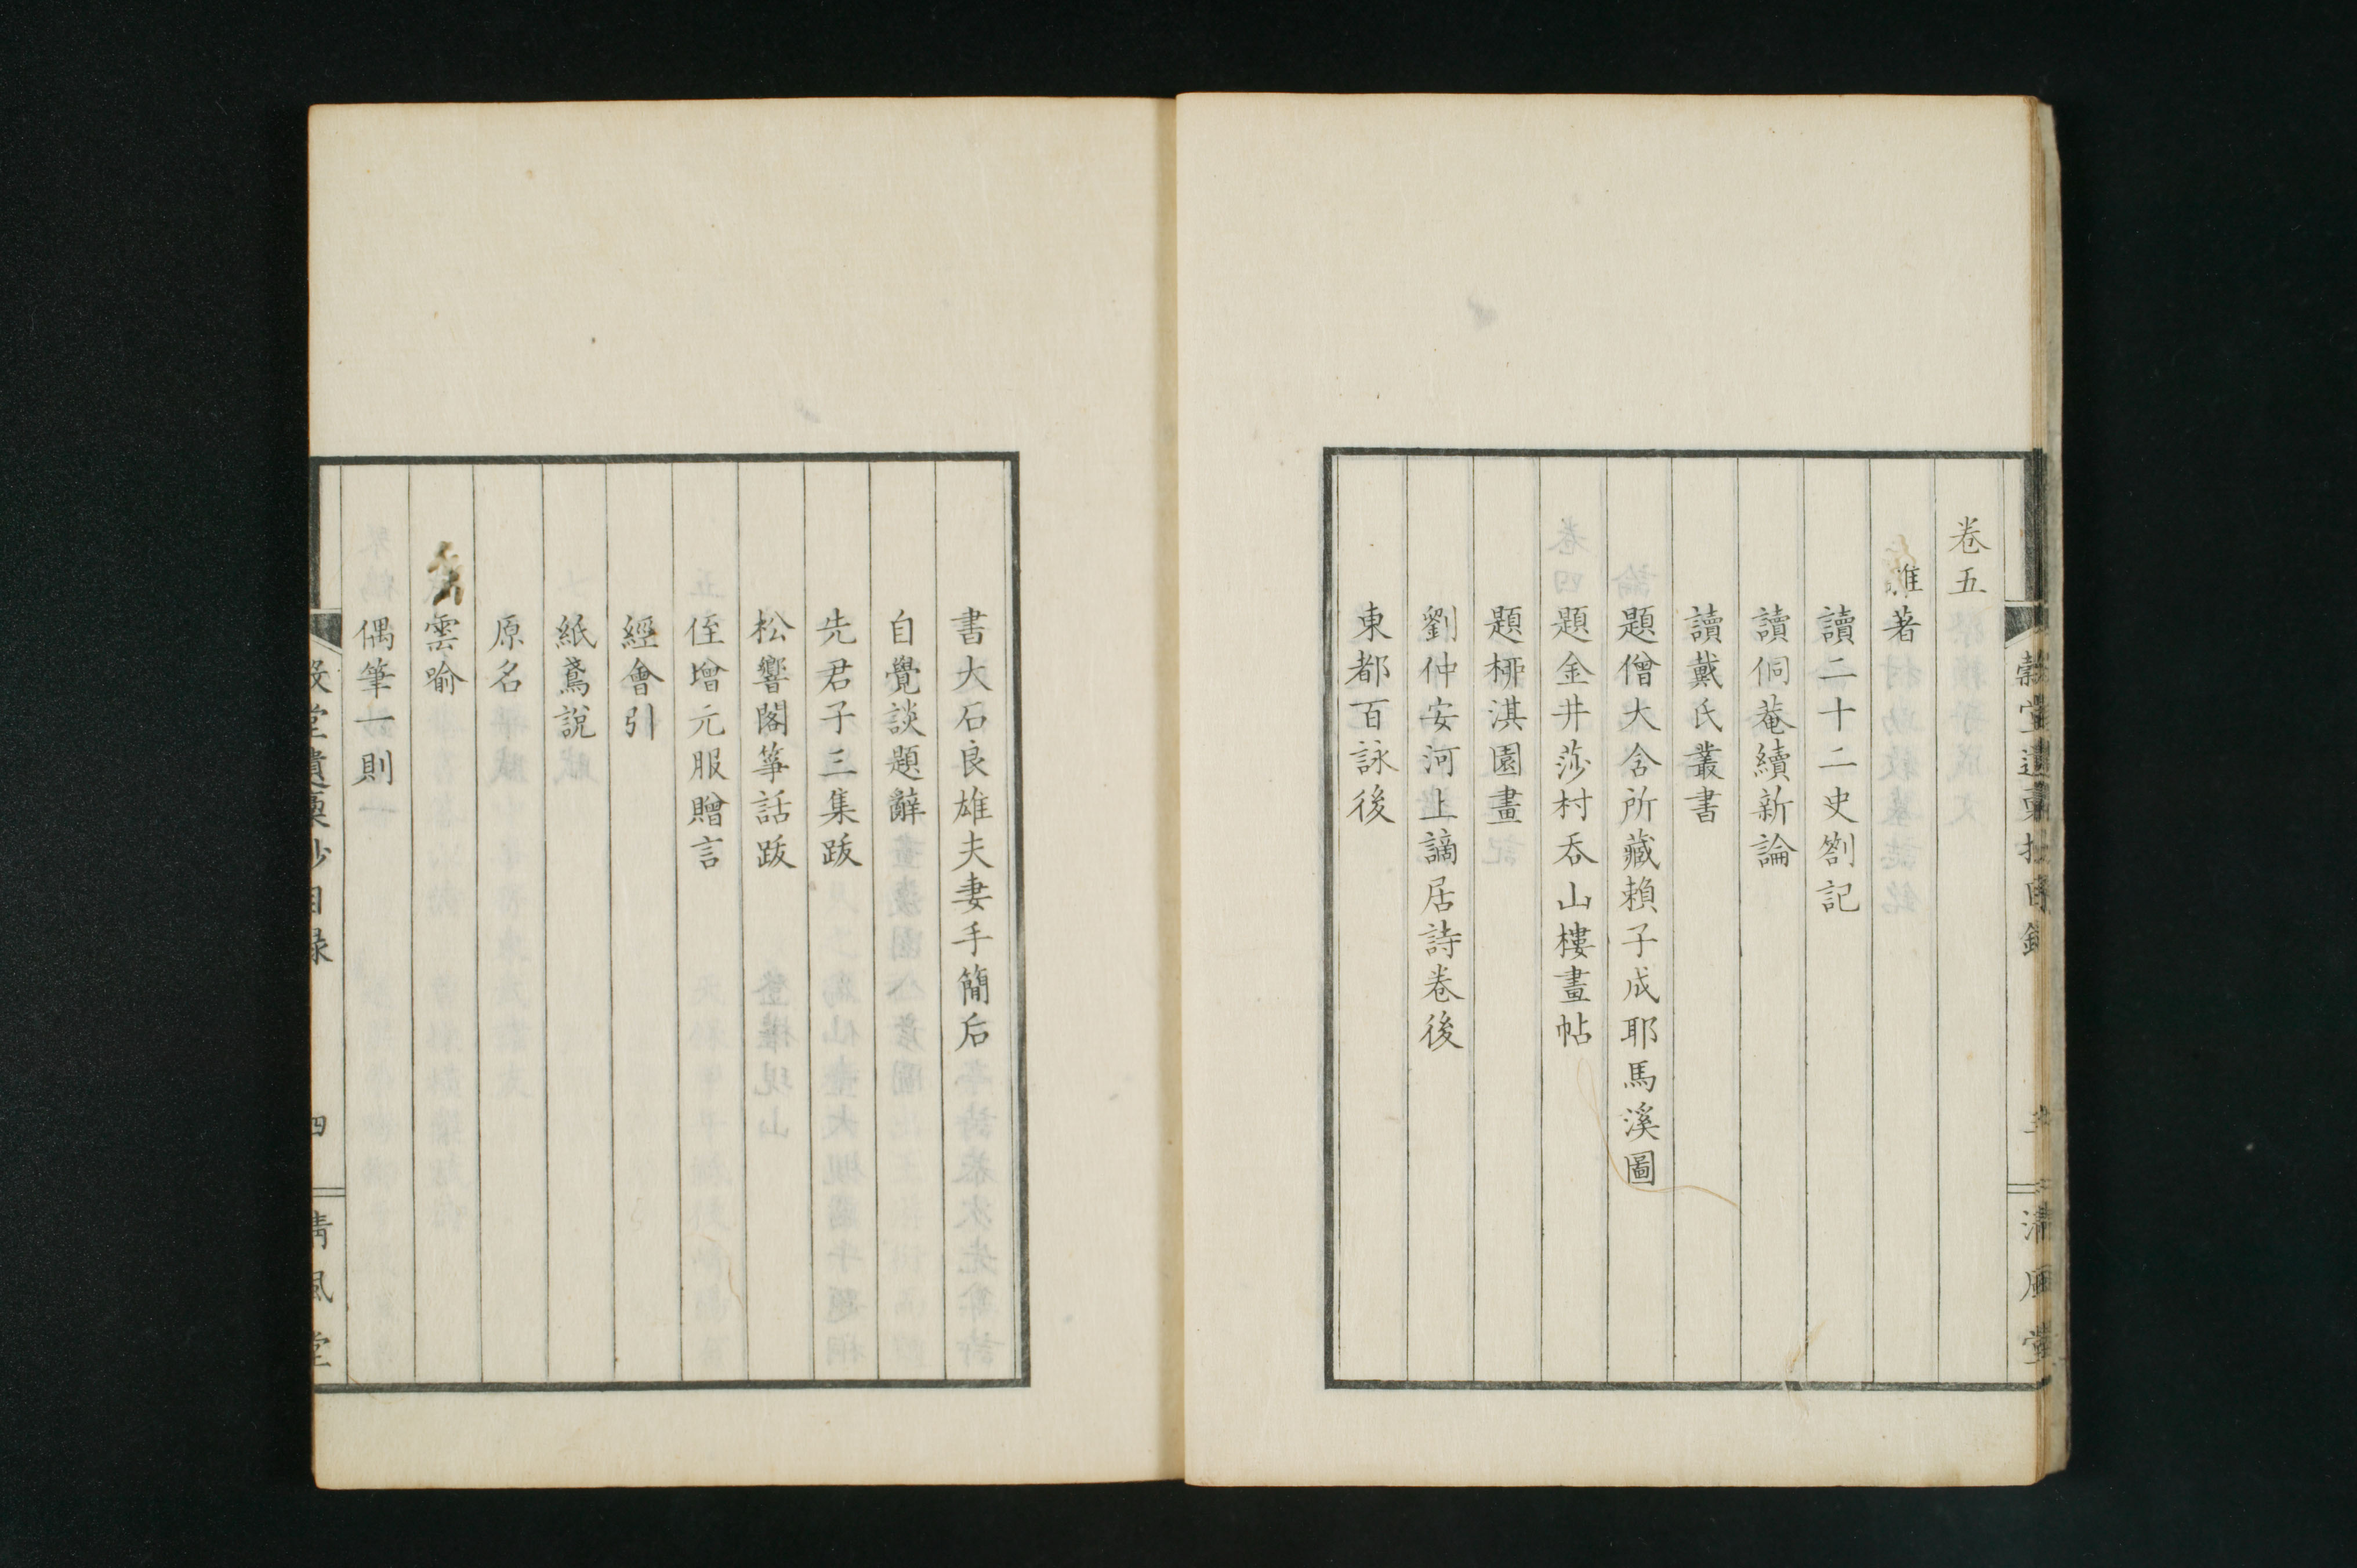 卷五
雜著
讀二十二史劄記
讀侗菴續新論
讀戴氏叢書
題僧大含所藏賴子成耶馬溪圖
題金井莎村吞山樓畫帖
題柳淇園畫
劉仲安河上謫居詩卷後
東都百詠後
書大石良雄夫妻手簡后
自覺談題辭
先君子三集跋
松響閣箏話跋
侄增元服贈言
經會引
紙鳶說
原名
雲喻
偶筆一則
穀堂遺稾抄目錄
清風堂
四